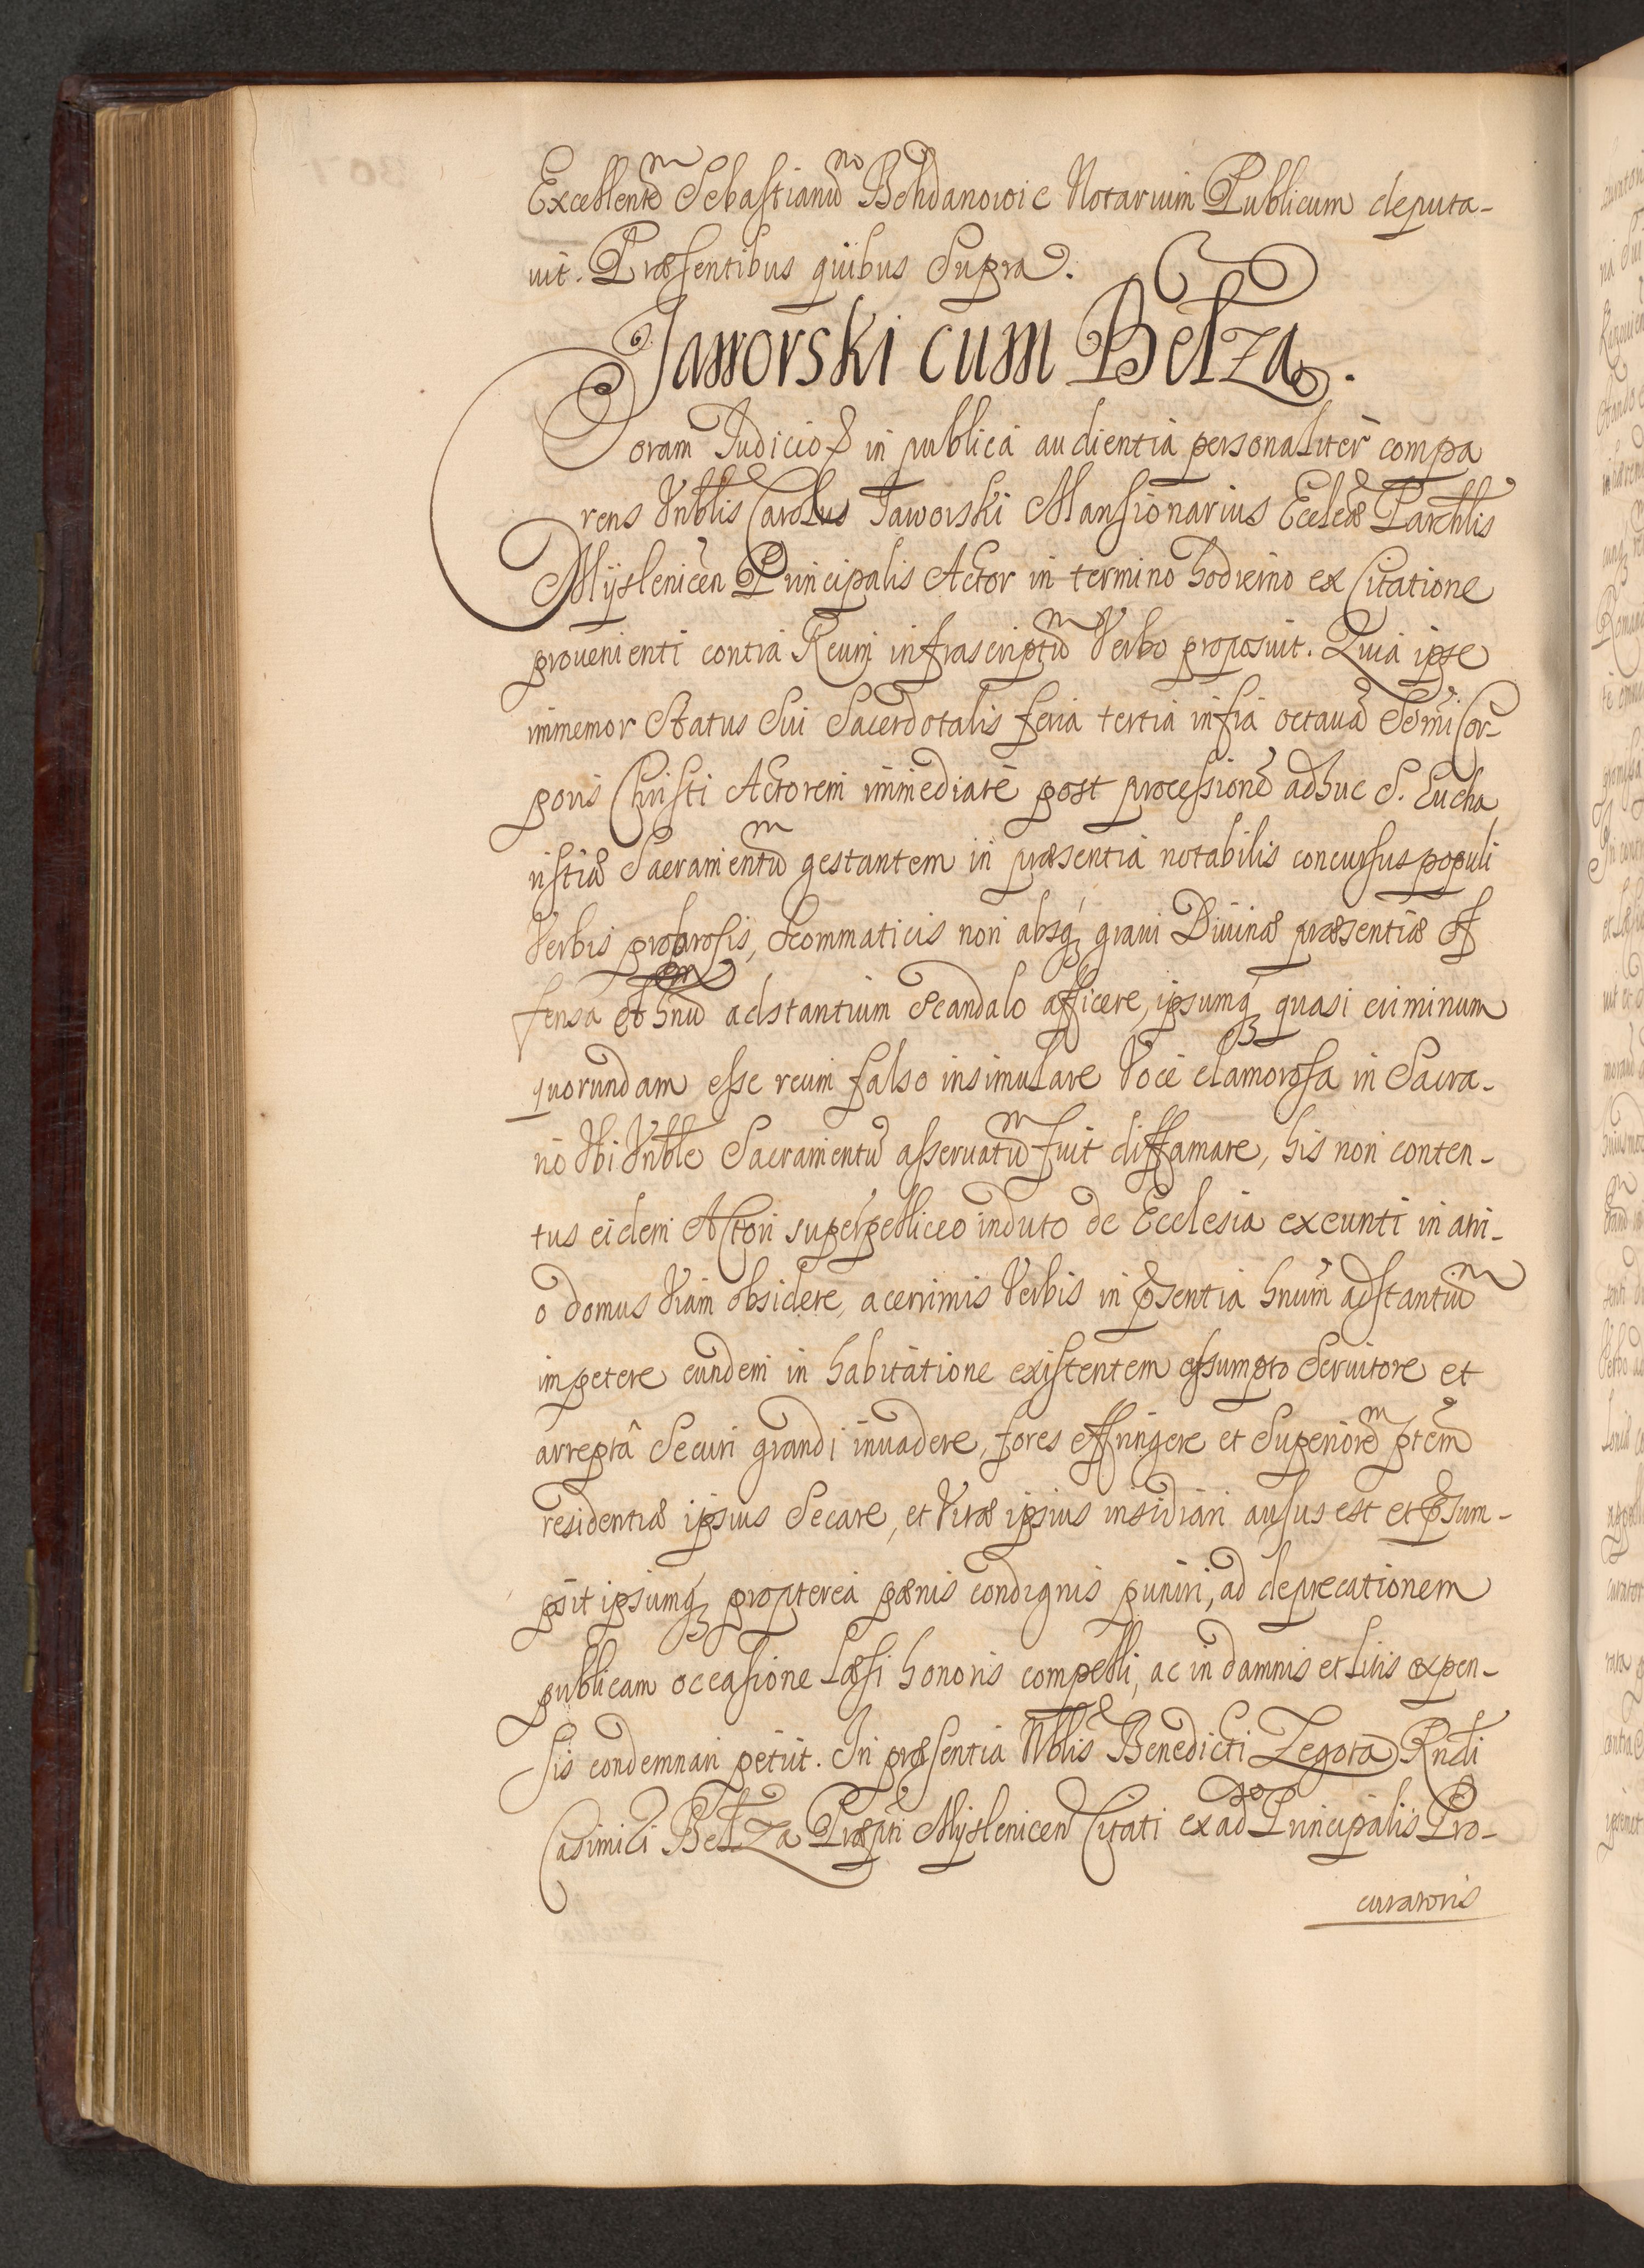 Excellentem Sebastianum Bohdanowic Notarium Publicum deputa-
uit. Præsentibus quibus Supra.
Jaworski cum Bełza.
Coram Judicio & in publica audientia personaliter compa
rens Vnblis Carolus Jaworski Mansionarius Eccleæ Parchlis
Myslenicen Principalis Actor in termino hodierno ex Citatione
prouenienti contra Reum infrascriptum Verbo proposuit. Quia ipse
immemor Status Sui Sacerdotalis feria tertia infra octauã Ssmi Cor-
poris Christi Actorem immediate post processionẽ adhuc S. Eucha
ristiæ Sacramentum gestantem in præsentia notabilis concursus populi
Verbis probrosis, Scommaticis non absq́ graui Diuinæ præsentiæ of
fensa et hnũ adstantium Scandalo afficere, ipsumq́ quasi criminum
quorundam esse reum falso insimulare Voce clamorosa in Sacra-
rio Vbi Vnble Sacramentũ asseruatum fuit diffamare, his non conten-
tus eidem Actori superpelliceo induto de Ecclesia exeunti in atri-
o domus Viam obsidere, acerrimis Verbis in psentia hnum adstantium
impetere eundem in habitatione existentem assumpto Seruitore et
arreptâ Securi grandi inuadere, fores effringere et Superiorem ptem
residentiæ ipsius Secare, et Vitæ ipsius insidiari ausus est et psum-
psit ipsumq́ propterea pænis condignis puniri, ad deprecationem
publicam occasione læsi honoris compelli, ac in damnis et litis expen-
sis condemnari petiit. In præsentia Nblis Benedicti Zegota Rndi
Casimiri Bełza Præpti Myslenicen Citati ex ad Principalis Pro-
curatoris